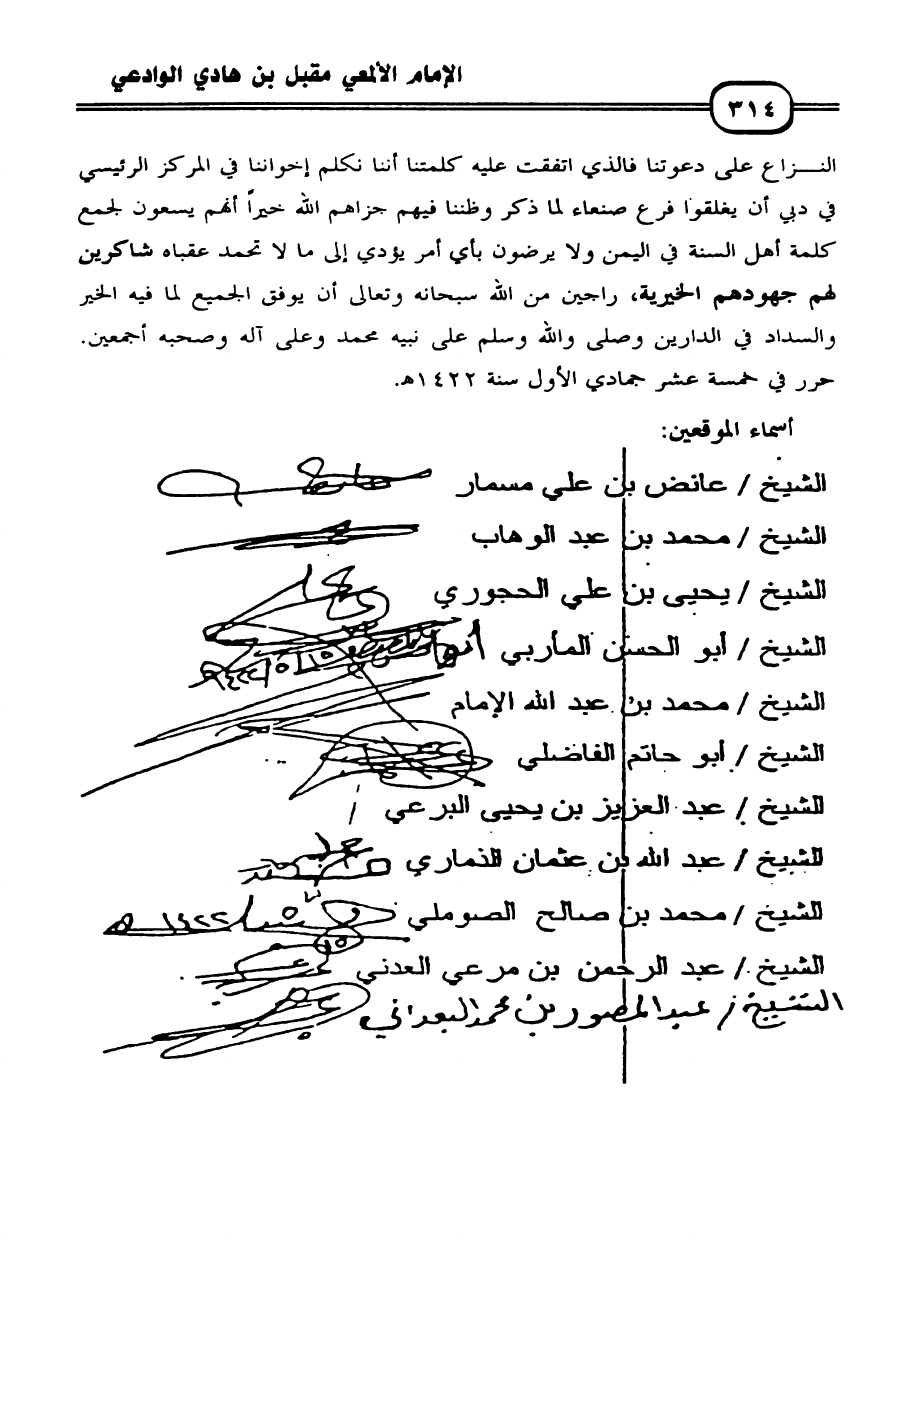 الإمام الألمعي مقبل بن هادي الوادعي
٣١٤
النـــزاع على دعوتنا فالذي اتفقت عليه كلمتنا أننا نكلم إخواننا في المركز الرئيسي
في دبي أن يغلقوا فرع صنعاء لما ذكر وظننا فيهم جزاهم الله خيراً أنهم يسعون لجمع
كلمة أهل السنة في اليمن ولا يرضون بأي أمر يؤدي إلى ما لا تحمد عقباه شاكرين
لهم جهودهم الخيرية، راجين من الله سبحانه وتعالى أن يوفق الجميع لما فيه الخير
والسداد في الدارين وصلى والله وسلم على نبيه محمد وعلى آله وصحبه أجمعين.
حرر في خمسة عشر جمادي الأول سنة ١٤٢٢هـ.
أسماء الموقعين:
الشيخ / عائض بن علي مسمار
الشيخ / محمد بن عبد الوهاب
الشيخ / يحيى بن علي الحجوري
الشيخ / أبو الحسن المأربي
الشيخ / محمد بن عبد الله الإمام
الشيخ / أبو حاتم الفاضلي
الشيخ / عبد العزيز بن يحيى البرعي
الشيخ / عبد الله بن عثمان الذماري
الشيخ / محمد بن صالح الصوملي
الشيخ / عبد الرحمن بن مرعي العدني
الشيخ / عبد المصور بن محمد البعداني